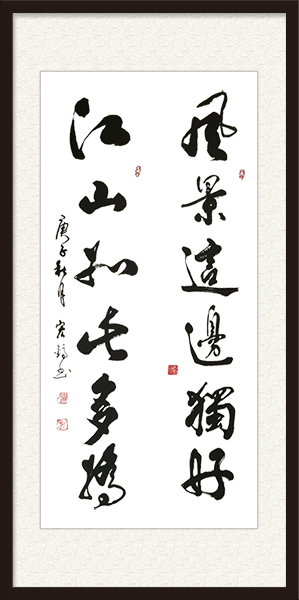 風景這邊獨好
江山如此多嬌
庚子秋月